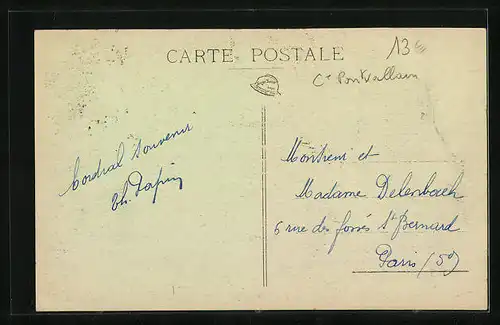 CARTE POSTALE
13
Cne Pontvallain
Cordial souvenir
Ch. Papin
Monsieur et
Madame Delenbach
6 rue des fossés St Bernard
Paris (5e)